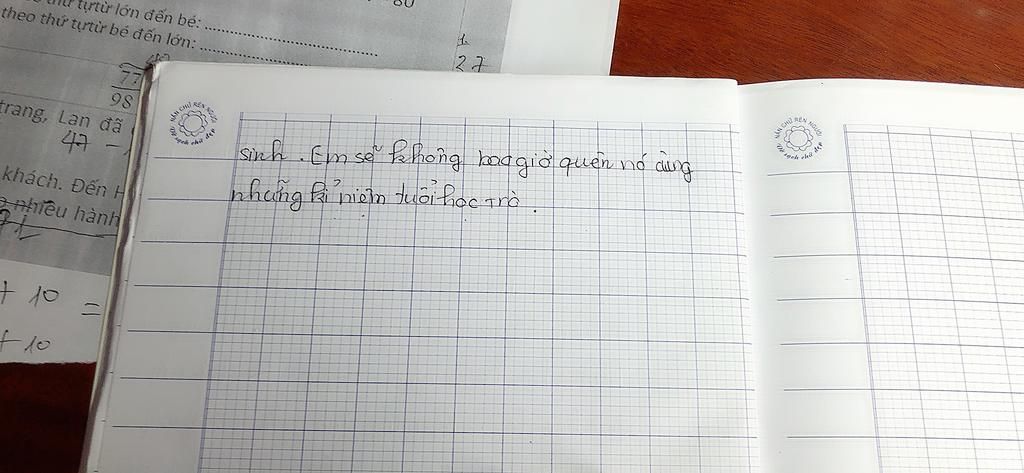 80
thứ tự từ lớn đến bé:
theo thứ tự từ bé đến lớn:
1
27
77
98
trang, Lan đã
47 -
khách. Đến H
nhiều hành
+ 10 =
+ 10
NẮN CHỮ RÈN NGƯỜI
Vở sạch chữ đẹp
sinh. Em sẽ không baogiờ quên nó cùng
những kỉ niệm tuổi học trò.
NẮN CHỮ RÈN NGƯỜI
Vở sạch chữ đẹp